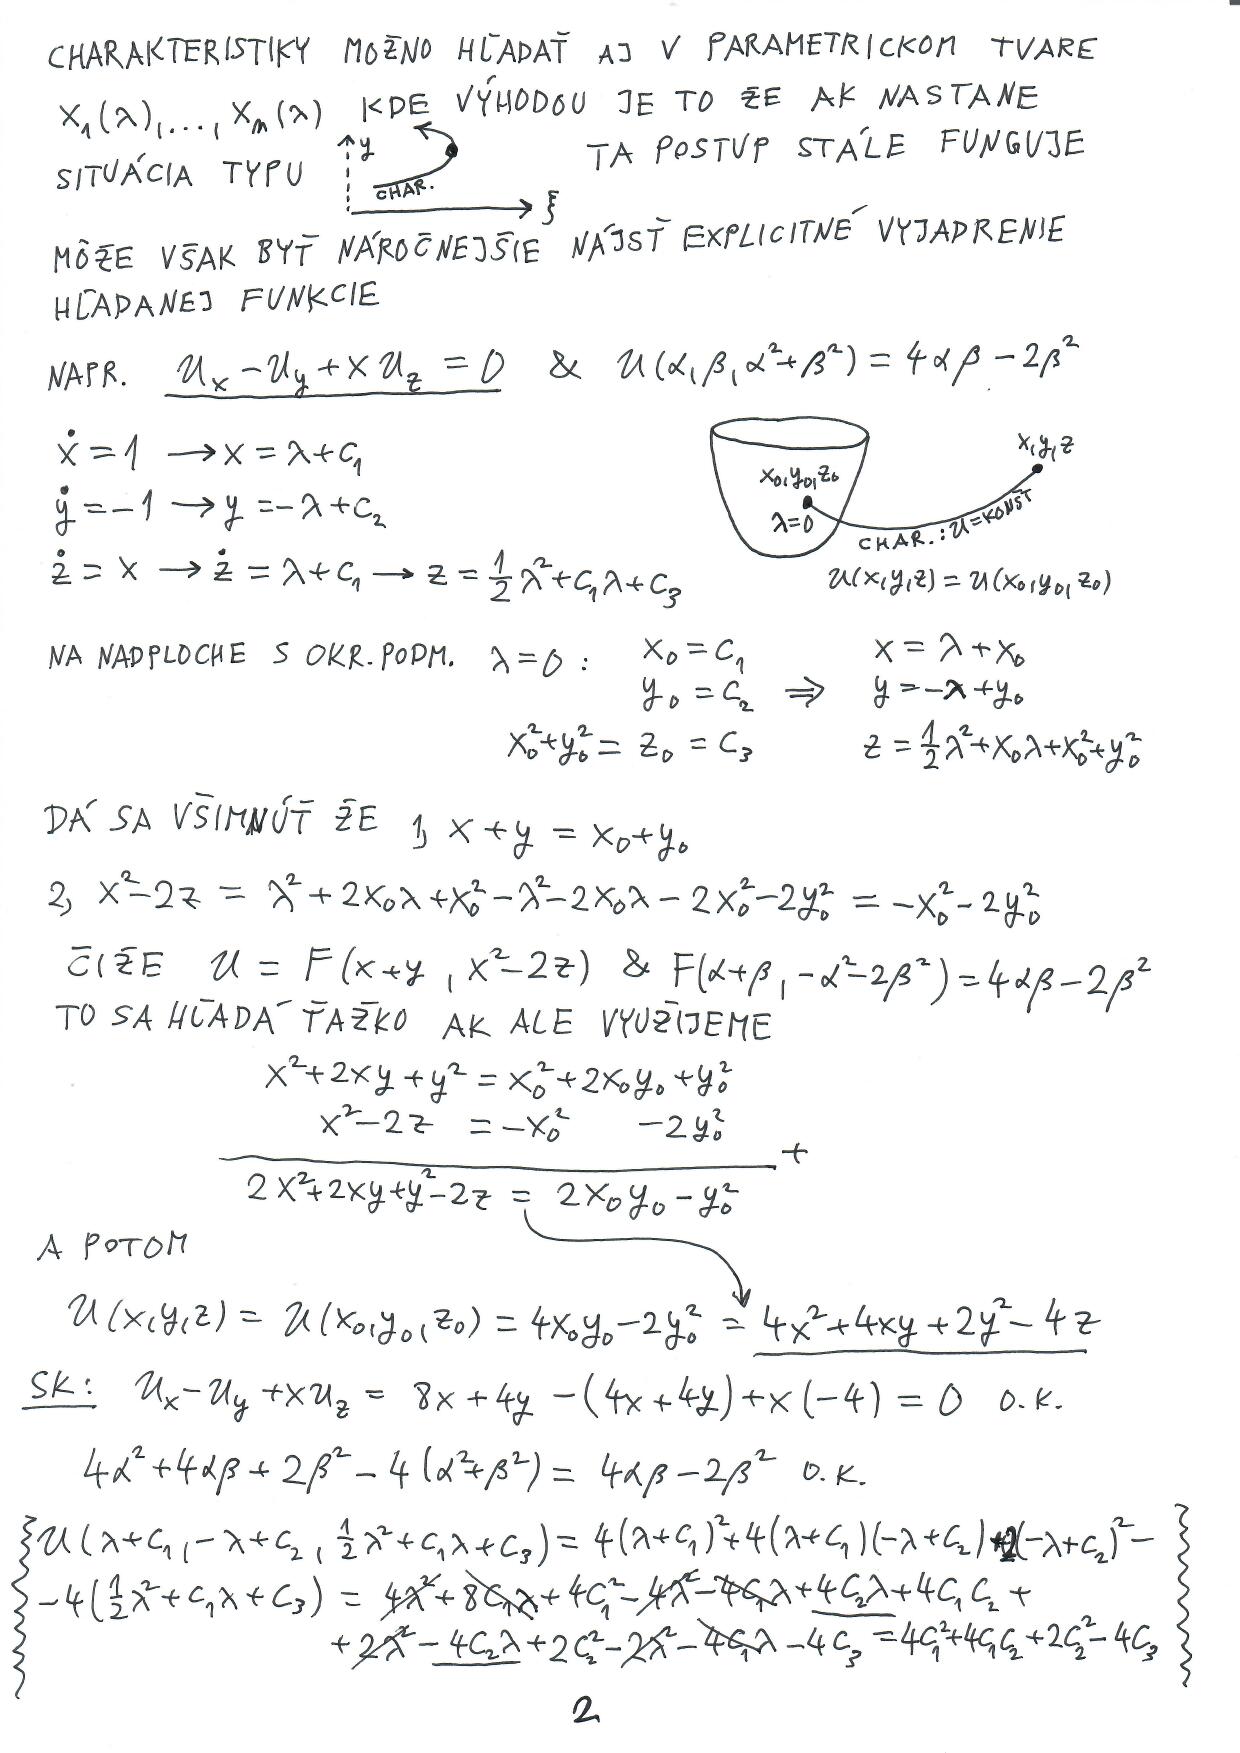 CHARAKTERISTIKY MOŽNO HĽADAŤ AJ V PARAMETRICKOM TVARE
X₁(λ),..., Xₘ(λ) KDE VÝHODOU JE TO ŽE AK NASTANE
SITUÁCIA TYPU y CHAR. ξ TA POSTUP STÁLE FUNGUJE
MÔŽE VŠAK BYŤ NÁROČNEJŠIE NÁJSŤ EXPLICITNÉ VYJADRENIE
HĽADANEJ FUNKCIE
NAPR. Uₓ - U_y + X U_z = 0 & U(α, β, α²+β²) = 4αβ - 2β²
ẋ = 1 → x = λ + C₁
ẏ = -1 → y = -λ + C₂
ż = x → ż = λ + C₁ → z = ½λ² + C₁λ + C₃
x₀, y₀, z₀
λ=0
x, y, z
CHAR.: U=KONŠT
U(x,y,z) = U(x₀,y₀,z₀)
NA NADPLOCHE S OKR. PODM. λ=0 : x₀ = C₁ x = λ + x₀
y₀ = C₂ ⇒ y = -λ + y₀
x₀² + y₀² = z₀ = C₃ z = ½λ² + x₀λ + x₀² + y₀²
DÁ SA VŠIMNÚŤ ŽE 1, x + y = x₀ + y₀
2, x² - 2z = λ² + 2x₀λ + x₀² - λ² - 2x₀λ - 2x₀² - 2y₀² = -x₀² - 2y₀²
ČIŽE U = F(x+y, x²-2z) & F(α+β, -α²-2β²) = 4αβ - 2β²
TO SA HĽADÁ ŤAŽKO AK ALE VYUŽIJEME
x² + 2xy + y² = x₀² + 2x₀y₀ + y₀²
x² - 2z = -x₀² - 2y₀²
+
2x² + 2xy + y² - 2z = 2x₀y₀ - y₀²
A POTOM
U(x,y,z) = U(x₀,y₀,z₀) = 4x₀y₀ - 2y₀² = 4x² + 4xy + 2y² - 4z
SK: Uₓ - U_y + xU_z = 8x + 4y - (4x + 4y) + x(-4) = 0 O.K.
4α² + 4αβ + 2β² - 4(α²+β²) = 4αβ - 2β² O.K.
U(λ+C₁, -λ+C₂, ½λ²+C₁λ+C₃) = 4(λ+C₁)² + 4(λ+C₁)(-λ+C₂) + 2(-λ+C₂)² -
-4(½λ² + C₁λ + C₃) = 4λ² + 8C₁λ + 4C₁² - 4λ² - 4C₁λ + 4C₂λ + 4C₁C₂ +
+ 2λ² - 4C₂λ + 2C₂² - 2λ² - 4C₁λ - 4C₃ = 4C₁² + 4C₁C₂ + 2C₂² - 4C₃
2